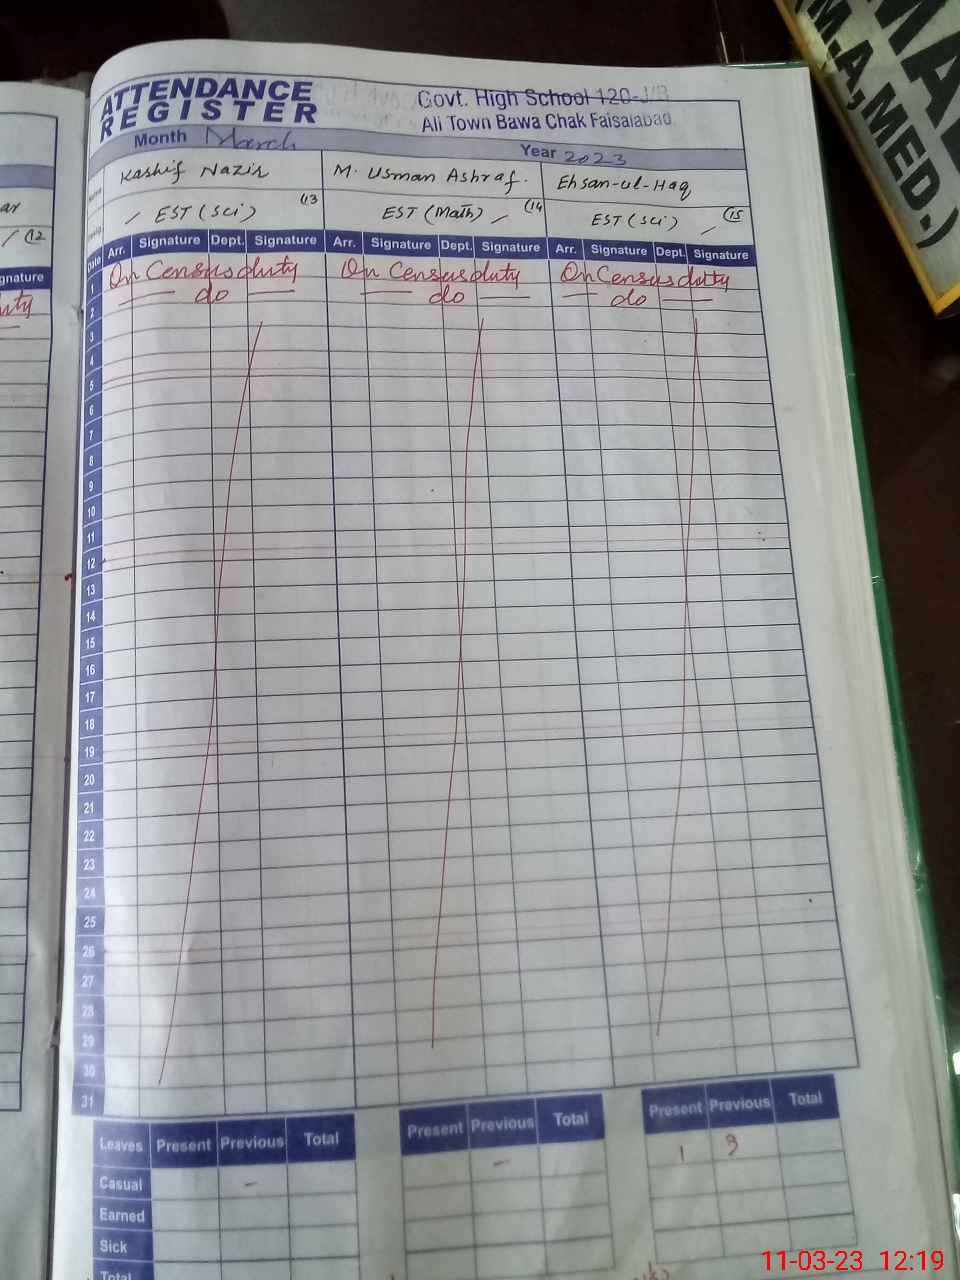 ATTENDANCE
REGISTER
Govt. High School 120-J/B
Ali Town Bawa Chak Faisalabad
Month March
Year 2023
Kashif Nazir M. Usman Ashraf. Ehsan-ul-Haq
EST (Sci) (13 EST (Math) (14 EST (Sci) (15
Date Arr. Signature Dept. Signature Arr. Signature Dept. Signature Arr. Signature Dept. Signature
1 On Census duty On Census duty On Census duty
2 do do do
3
4
5
6
7
8
9
10
11
12
13
14
15
16
17
18
19
20
21
22
23
24
25
26
27
28
29
30
31
Leaves Present Previous Total Present Previous Total Present Previous Total
Casual - - 1 3
Earned
Sick
Total
ar
(12
gnature
uty
MA
(M.A,MED.)
11-03-23 12:19